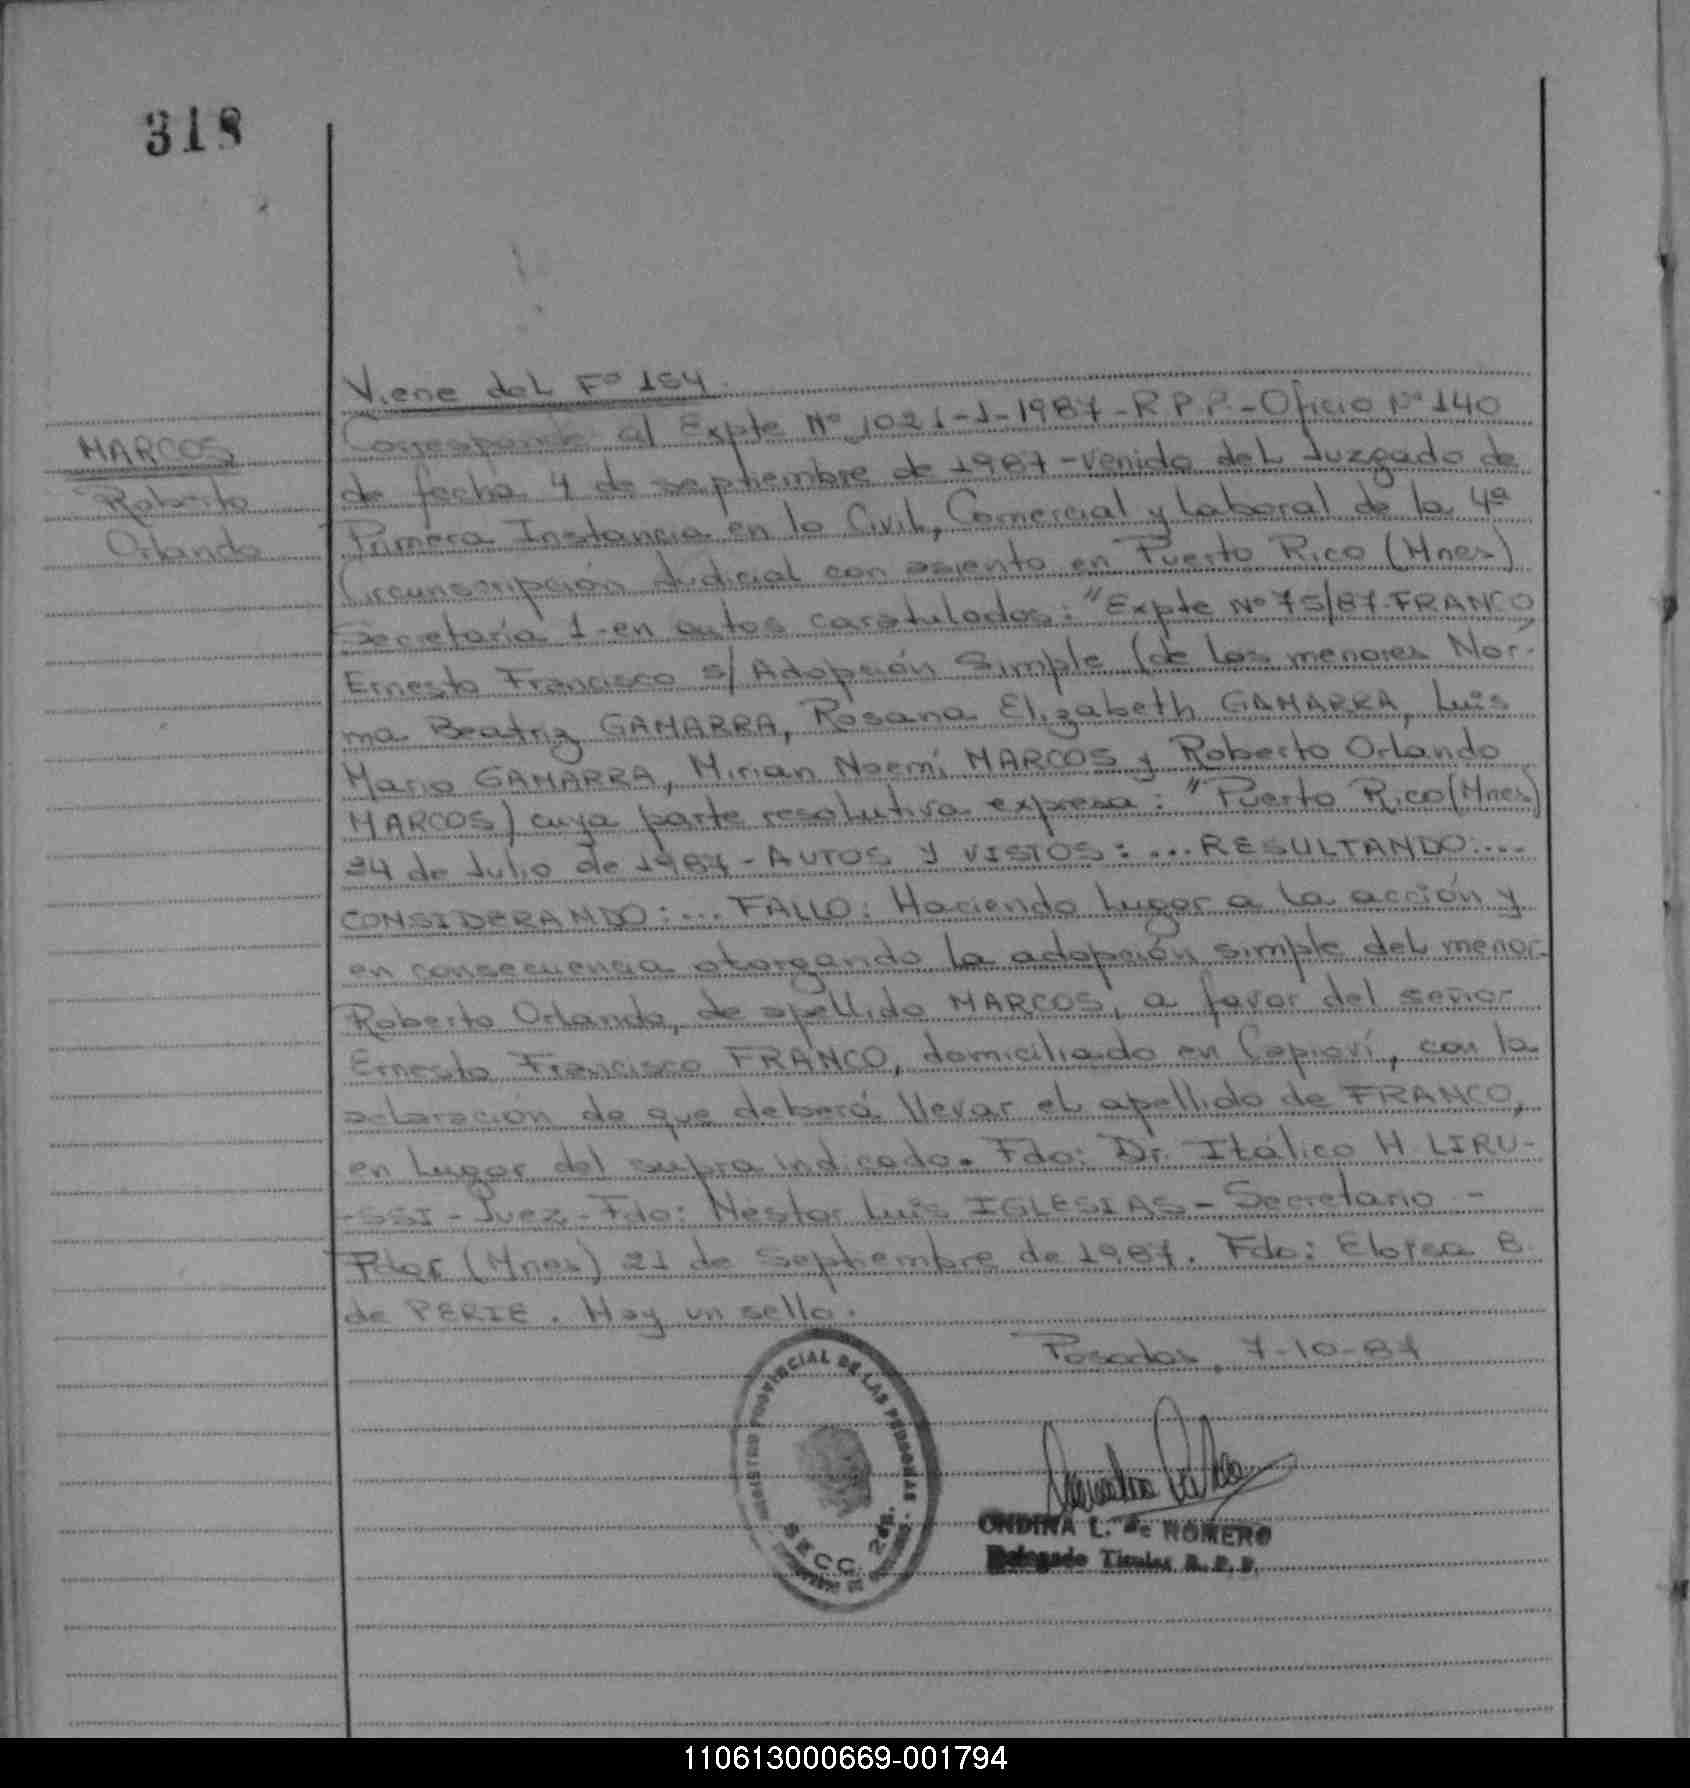 318
Viene del Fº 154.
MARCOS
Roberto
Orlando
Corresponde al Expte Nº 1021-1-1987-R P P.-Oficio Nº 140
de fecha 4 de septiembre de 1987-venido del Juzgado de
Primera Instancia en lo Civil, Comercial y Laboral de la 4ª
Circunscripción Judicial con asiento en Puerto Rico (Mnes)
Secretaría 1-en autos caratulados: "Expte Nº 75/87-FRANCO
Ernesto Francisco s/ Adopción Simple (de los menores Nor-
ma Beatriz GAMARRA, Rosana Elizabeth GAMARRA, Luis
Mario GAMARRA, Mirian Noemí MARCOS y Roberto Orlando
MARCOS) cuya parte resolutiva expresa: "Puerto Rico (Mnes)
24 de Julio de 1987-AUTOS Y VISTOS: ...RESULTANDO:...
CONSIDERANDO:... FALLO: Haciendo lugar a la acción y
en consecuencia otorgando la adopción simple del menor
Roberto Orlando, de apellido MARCOS, a favor del señor
Ernesto Francisco FRANCO, domiciliado en Capioví, con la
aclaración de que deberá llevar el apellido de FRANCO,
en lugar del supra indicado. Fdo: Dr. Itálico H. LIRU-
-SSI - Juez - Fdo: Nestor Luis IGLESIAS - Secretario -
Pdas (Mnes) 21 de Septiembre de 1987. Fdo: Eloísa B.
de PERIE. Hay un sello.
Posadas, 7-10-87
REGISTRO PROVINCIAL DE LAS PERSONAS
SECC. 2da.
ONDINA L. de ROMERO
Delegado Titular R. P. P.
110613000669-001794